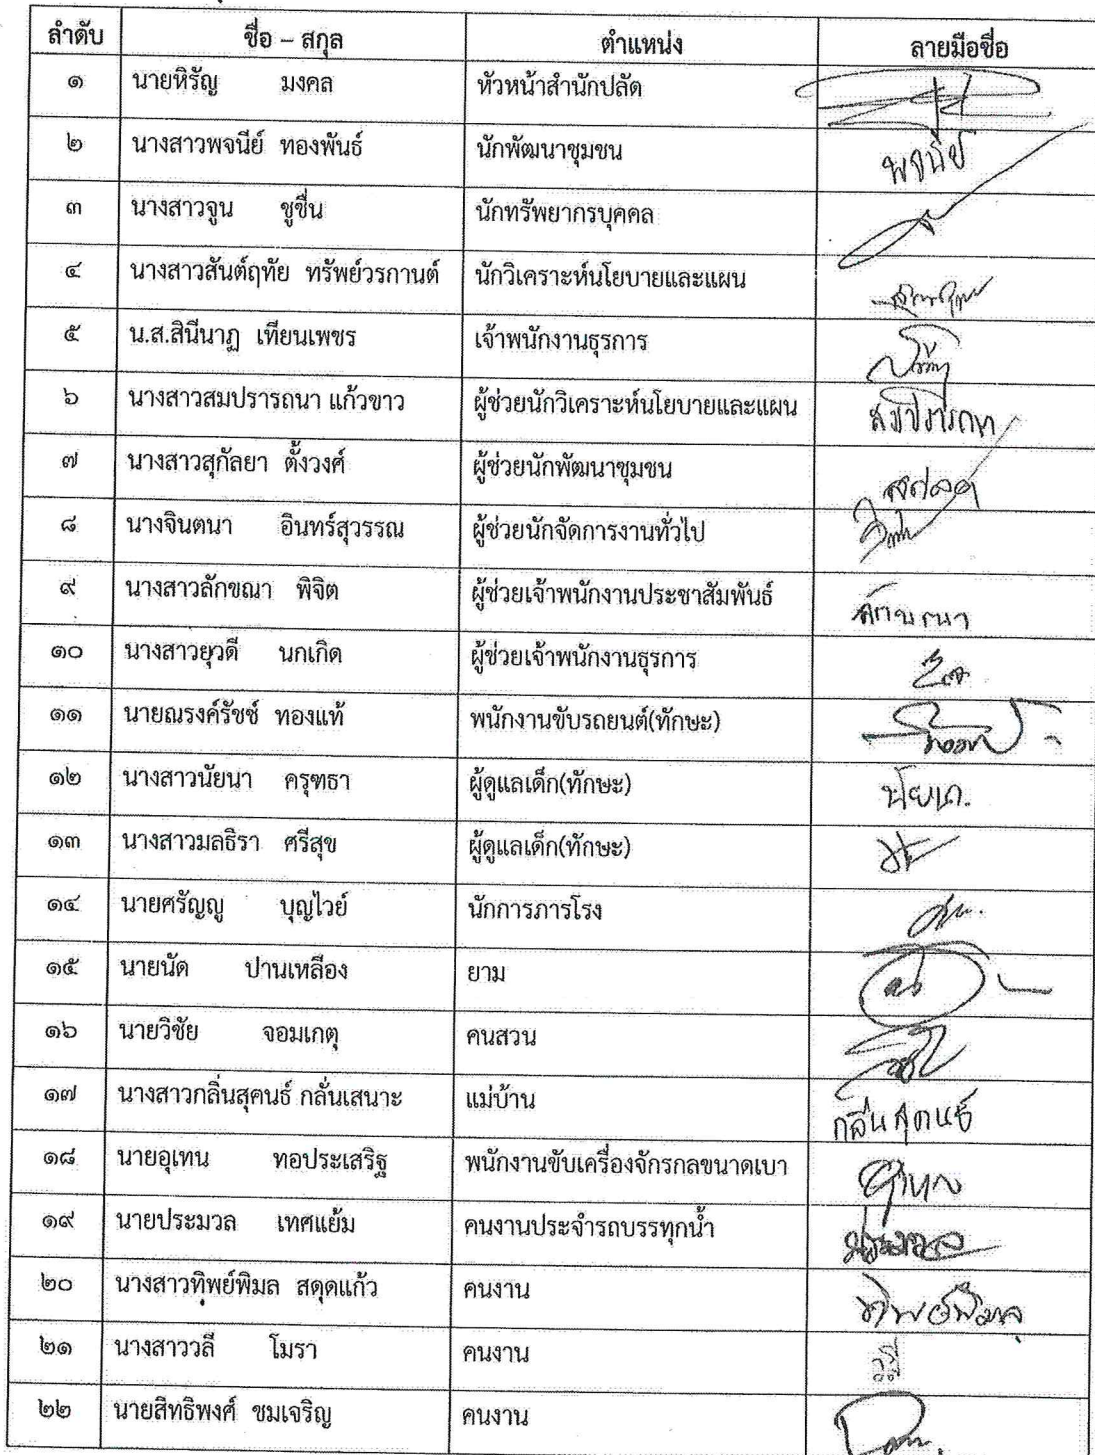 ลำดับ ชื่อ – สกุล ตำแหน่ง ลายมือชื่อ
๑ นายหิรัญ มงคล หัวหน้าสำนักปลัด
๒ นางสาวพจนีย์ ทองพันธ์ นักพัฒนาชุมชน พจนีย์
๓ นางสาวจูน ชูชื่น นักทรัพยากรบุคคล
๔ นางสาวสันต์ฤทัย ทรัพย์วรกานต์ นักวิเคราะห์นโยบายและแผน
๕ น.ส.สินีนาฏ เทียนเพชร เจ้าพนักงานธุรการ
๖ นางสาวสมปรารถนา แก้วขาว ผู้ช่วยนักวิเคราะห์นโยบายและแผน สมปรารถนา
๗ นางสาวสุกัลยา ตั้งวงศ์ ผู้ช่วยนักพัฒนาชุมชน
๘ นางจินตนา อินทร์สุวรรณ ผู้ช่วยนักจัดการงานทั่วไป
๙ นางสาวลักขณา พิจิต ผู้ช่วยเจ้าพนักงานประชาสัมพันธ์ ลักขณา
๑๐ นางสาวยุวดี นกเกิด ผู้ช่วยเจ้าพนักงานธุรการ
๑๑ นายณรงค์รัชช์ ทองแท้ พนักงานขับรถยนต์(ทักษะ)
๑๒ นางสาวนัยนา ครุฑธา ผู้ดูแลเด็ก(ทักษะ) นัยนา
๑๓ นางสาวมลธิรา ศรีสุข ผู้ดูแลเด็ก(ทักษะ)
๑๔ นายศรัญญู บุญไวย์ นักการภารโรง
๑๕ นายนัด ปานเหลือง ยาม
๑๖ นายวิชัย จอมเกตุ คนสวน
๑๗ นางสาวกลิ่นสุคนธ์ กลั่นเสนาะ แม่บ้าน กลิ่นสุคนธ์
๑๘ นายอุเทน ทอประเสริฐ พนักงานขับเครื่องจักรกลขนาดเบา
๑๙ นายประมวล เทศแย้ม คนงานประจำรถบรรทุกน้ำ ประมวล
๒๐ นางสาวทิพย์พิมล สดุดแก้ว คนงาน ทิพย์พิมล
๒๑ นางสาววลี โมรา คนงาน วลี
๒๒ นายสิทธิพงศ์ ชมเจริญ คนงาน